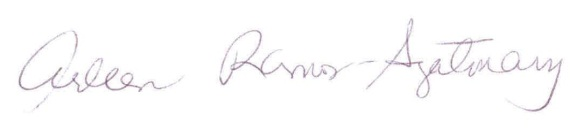 Arleen Ramos-Szatmary